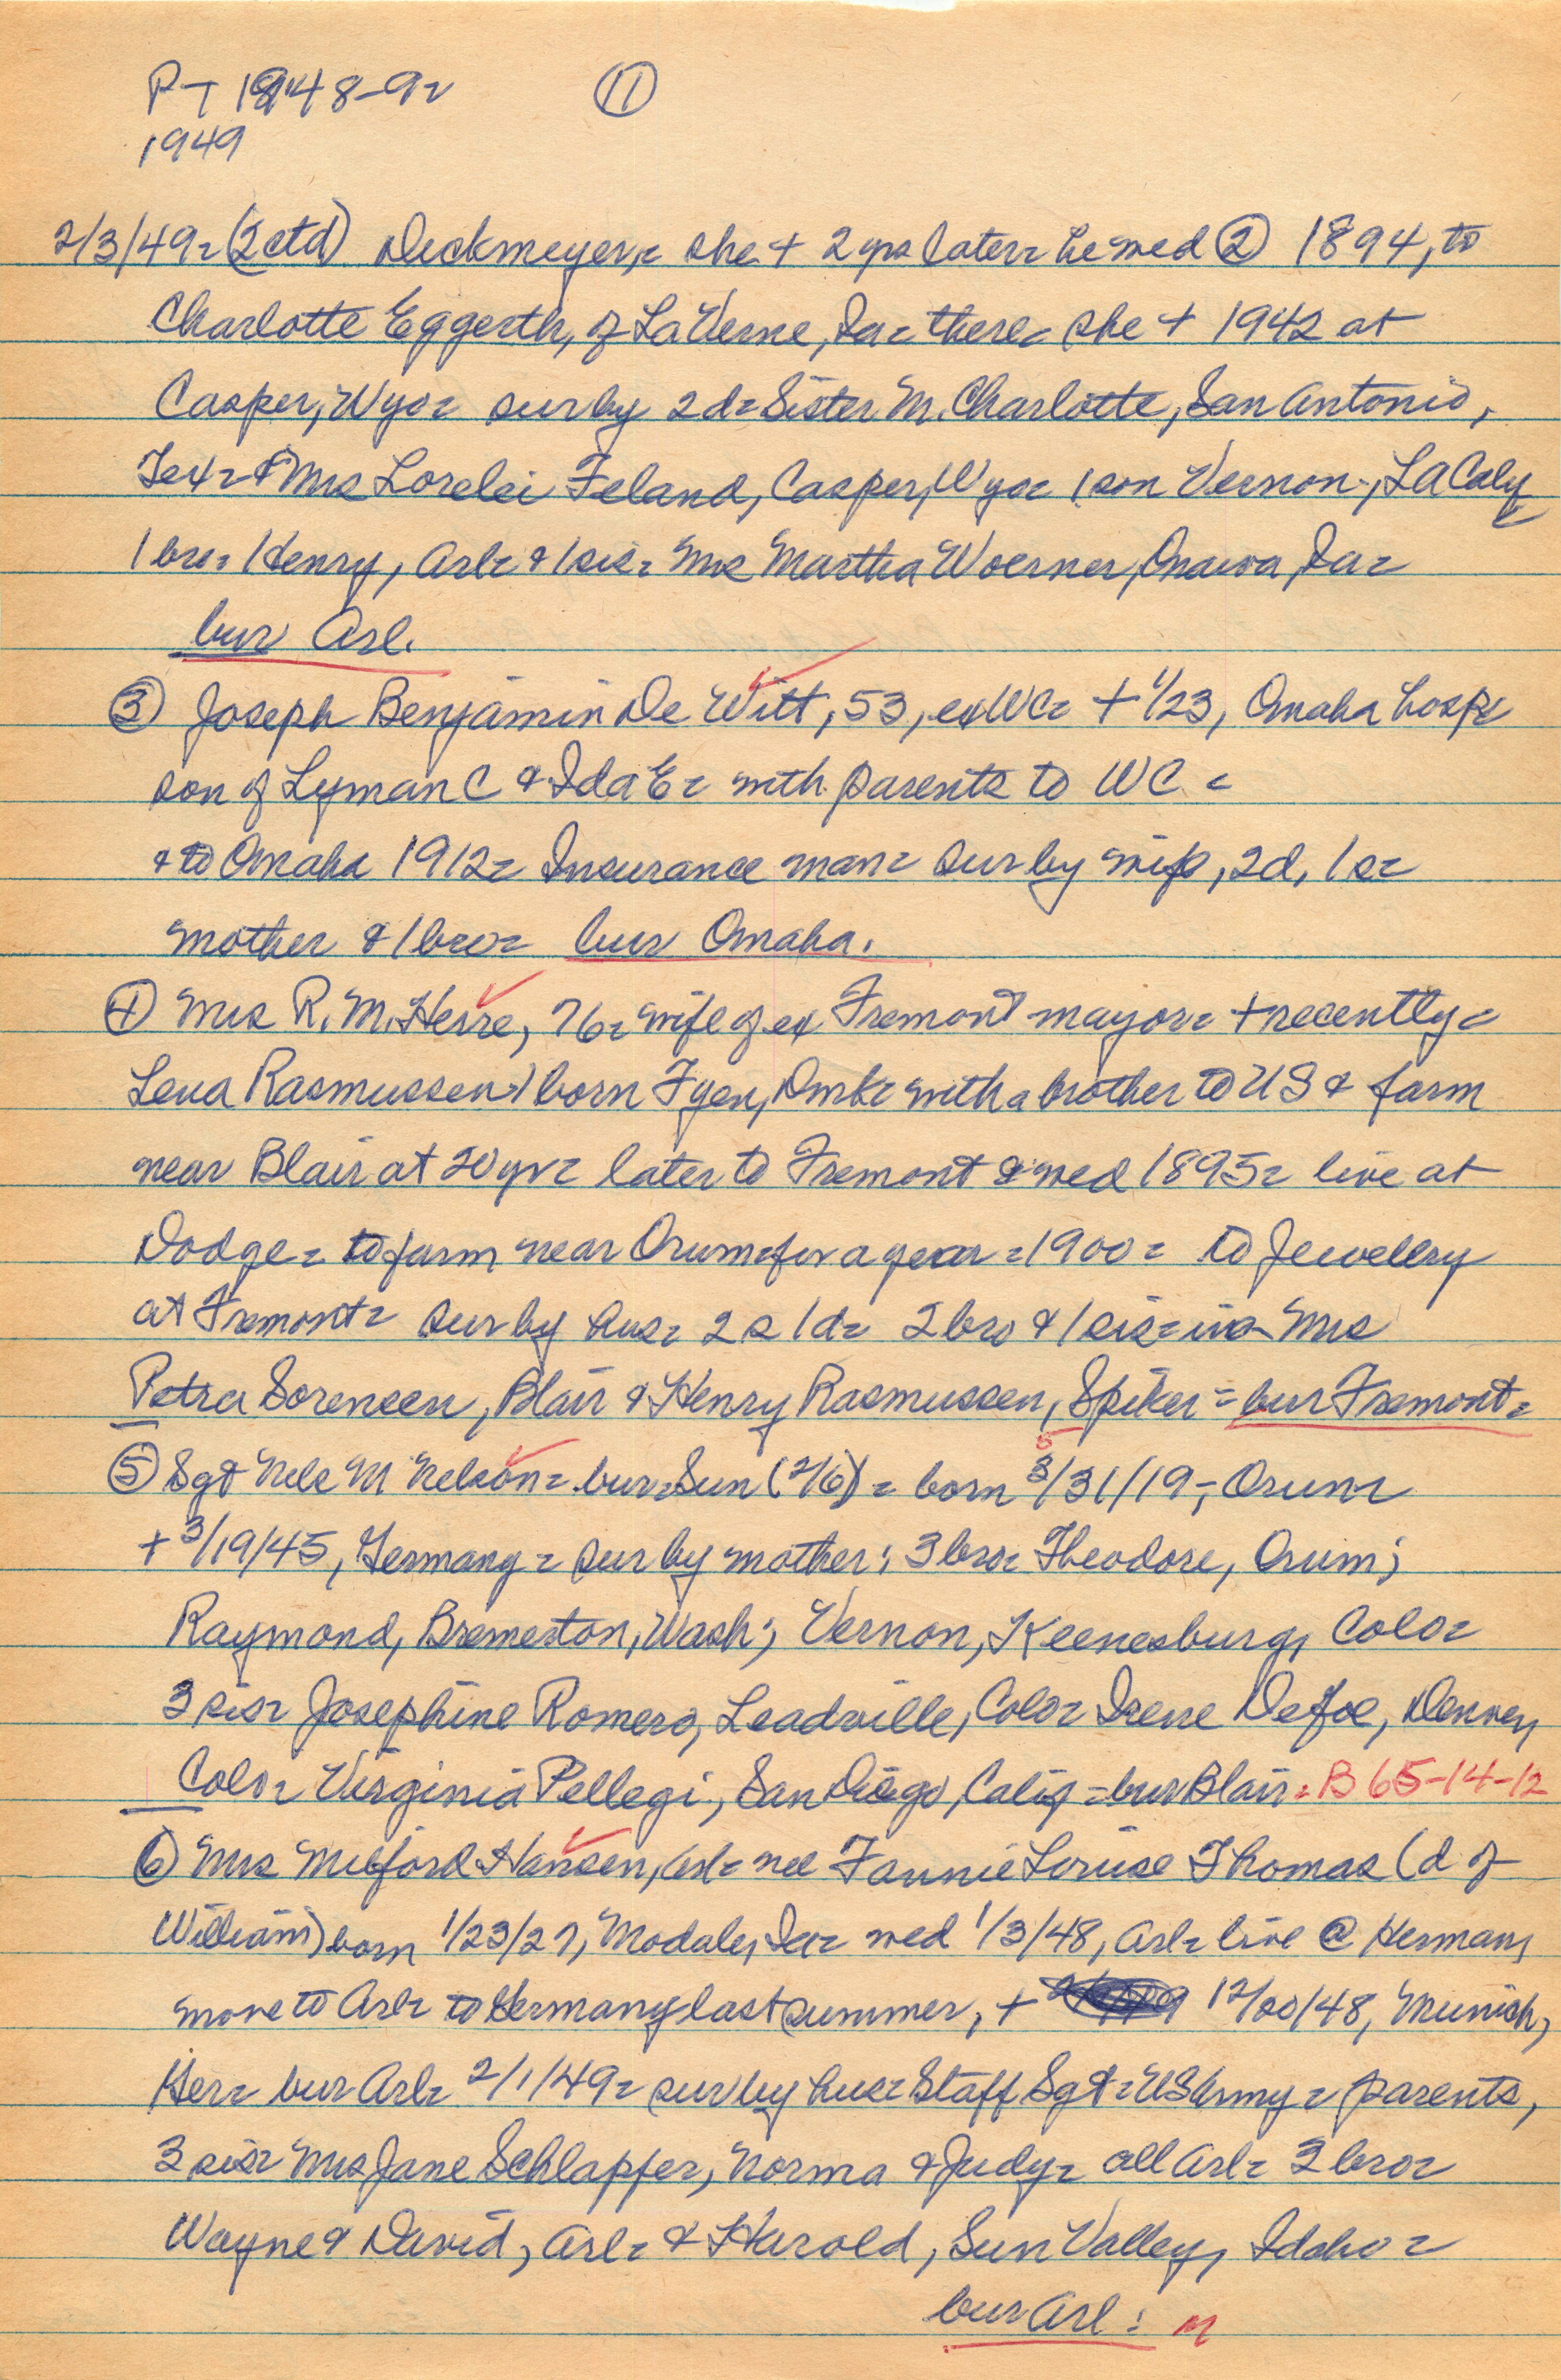 P-T 1948-9=
⑪
1949
2/3/49= (2ctd) Dieckmeyer,= she + 2 yrs later= he wed ② 1894, to
Charlotte Eggerth, of LaVerne, Ia= there= she + 1942 at
Casper, Wyo= sur by 2d= Sister M. Charlotte, San Antonio,
Tex= & Mrs Lorelei Feland, Casper, Wyo= 1 son Vernon-, LA Calif
1 bro= Henry, Arl= & 1 sis= Mrs Martha Woerner, Onawa, Ia=
bur Arl.
③ Joseph Benjamin De Witt, 53, exWC= + 1/23, Omaha hosp=
son of Lyman C & Ida E= with parents to WC =
& to Omaha 1912= Insurance man= sur by wife, 2d, 1s=
mother & 1 bro= bur Omaha.
④ Mrs R. M. Heise, 76= wife of ex Fremont mayor= + recently=
Lena Rasmussen) born Fyen, Dmk= with a brother to US & farm
near Blair at 20 yr= later to Fremont & wed 1895= live at
Dodge= to farm near Orum= for a year =1900= to Jewellery
at Fremont= sur by hus= 2s 1d= 2 bro & 1 sis= Mrs
Petra Sorensen, Blair & Henry Rasmussen, Spiker = bur Fremont=
⑤ Sgt Nels M Nelson= bur= Sun (2/6) = born 3/31/19-, Orum=
5
+ 3/19/45, Germany = sur by mother; 3 bro= Theodore, Orum;
Raymond, Bremerton, Wash; Vernon, Keenesburg, Colo=
3 sis= Josephine Romero, Leadville, Colo= Irene Defoe, Denver,
Colo= Virginia Pellegi, San Diego, Calif = bur Blair= B 65-14-12
⑥ Mrs Milford Hansen, Arl= nee Fannie Louise Thomas (d of
William) born 1/23/27, Modale, Ia= wed 1/3/48, Arl= live @ Herman,
move to Arl= to Germany last summer, + 12/20/48, Munich,
Ger= bur Arl= 2/1/49= sur by hus= Staff Sgt= US Army= parents,
3 sis= Mrs Jane Schlapfer, Norma & Judy= all Arl= 3 bro=
Wayne & David, Arl= & Harold, Sun Valley, Idaho=
bur Arl :